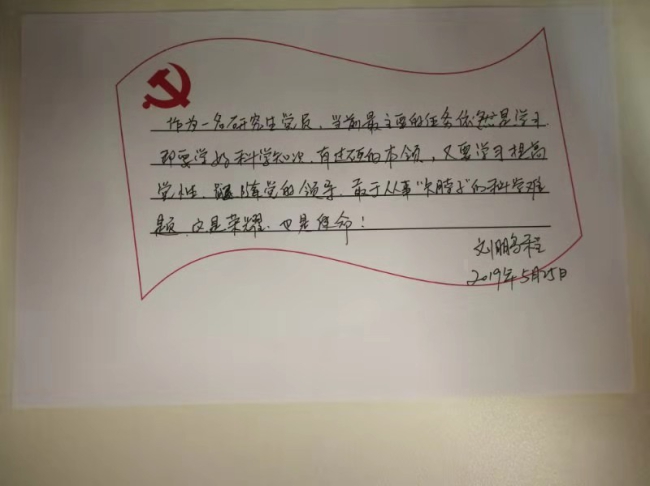 作为一名研究生党员，当前最主要的任务依然是学习
即要学好科学知识，有过硬的本领，又要学习提高
党性，跟随党的领导，敢于从事“卡脖子”的科学难
题，这是荣耀，也是使命！
刘鹏程
2019年5月25日